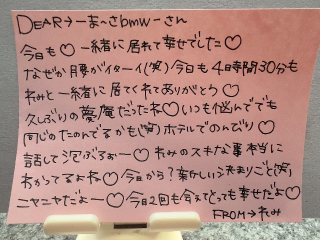 DEAR→まーさbmwーさん
今日も♡一緒に居れて幸せでした♡
なぜか腰がイターイ(笑)今日も4日時間30分も
れみと一緒に居てくれてありがとう♡
久しぶりの夢庵だったね♡いつも悩んででも
同じのたのんでるかも(笑)ホテルでのんびり♡
話して泡ぶろぉー♡れみのスキな事本当に
わかってるよね♡今日から?楽しい決まりごと(笑)
ニヤニヤだよー♡今日2回も会えてとっても幸せだよ♡
FROM→れみ